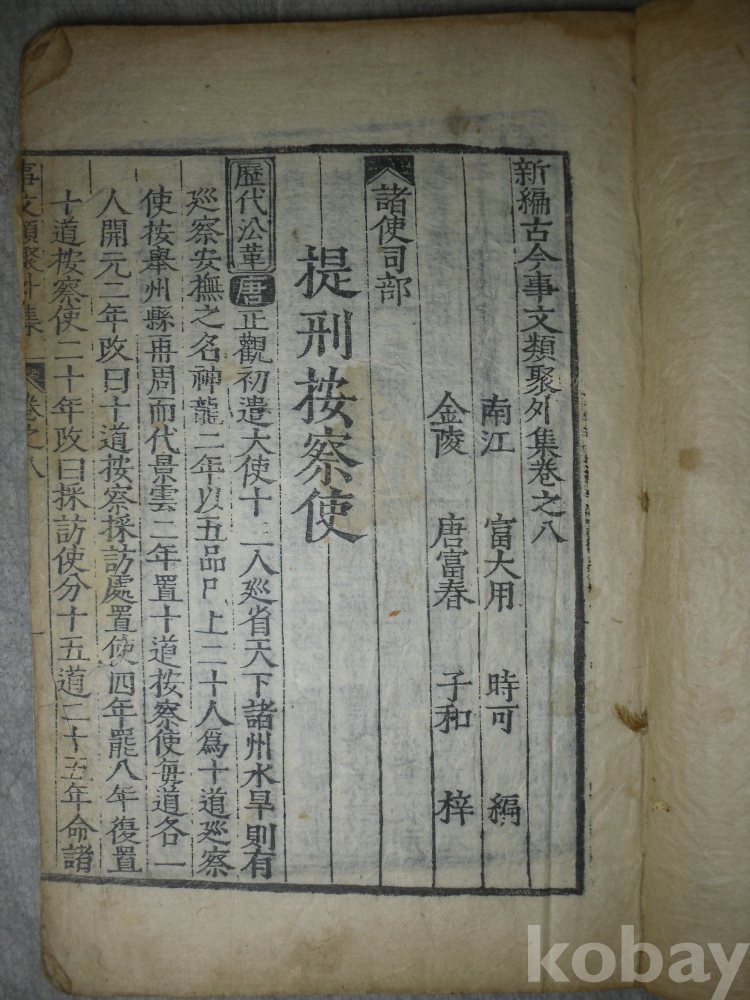 新編古今事文類聚外集卷之八
南江 富大用 時可 編
金陵 唐富春 子和 梓
諸使司部
提刑按察使
歷代沿革 唐 正觀初遣大使十三人廵省天下諸州水旱則有
廵察安撫之名神龍二年以五品㠯上二十人爲十道廵察
使按舉州縣再周而代景雲二年置十道按察使每道各一
人開元二年改曰十道按察採訪處置使四年罷八年復置
十道按察使二十年改曰採訪使分十五道二十五年命諸
事文類聚外集 卷之八
kobay